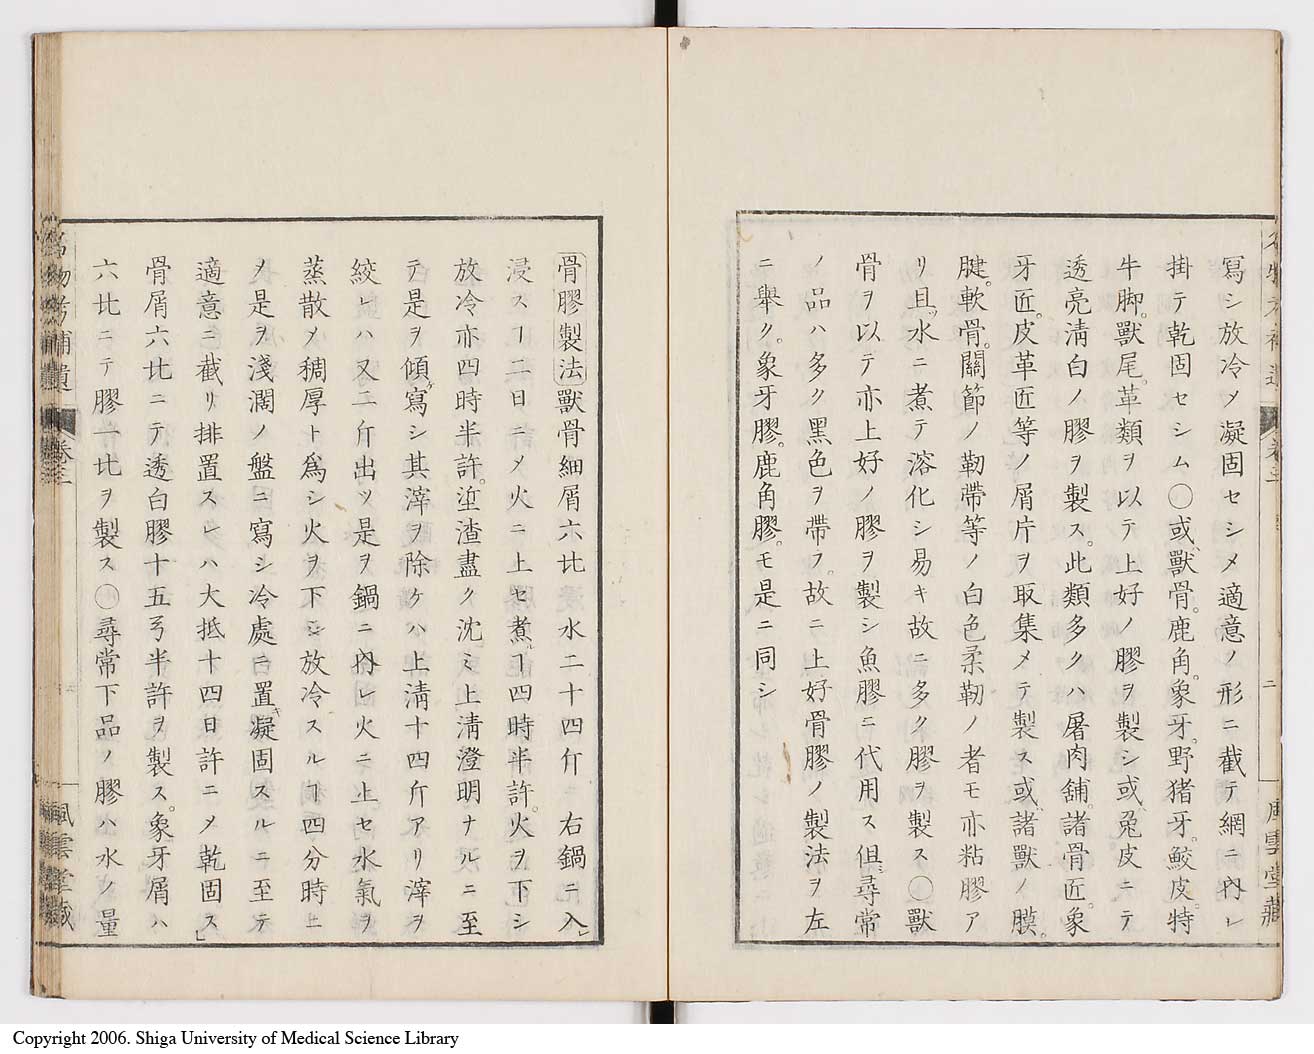 寫シ放冷メ凝固セシメ適意ノ形ニ截テ網ニ內レ
掛テ乾固セシム〇或獸骨。鹿角。象牙。野猪牙。鮫皮。特
牛脚。獸尾。革類ヲ以テ上好ノ膠ヲ製シ或兔皮ニテ
透亮淸白ノ膠ヲ製ス。此類多クハ屠肉舖。諸骨匠。象
牙匠。皮革匠等ノ屑片ヲ取集メテ製ス或諸獸ノ膜。
腱。軟骨。關節ノ靭帶等ノ白色柔靭ノ者モ亦粘膠ア
リ且水ニ煮テ溶化シ易キ故ニ多ク膠ヲ製ス〇獸
骨ヲ以テ亦上好ノ膠ヲ製シ魚膠ニ代用ス但尋常
ノ品ハ多ク黑色ヲ帶フ。故ニ上好骨膠ノ製法ヲ左
ニ擧ク。象牙膠。鹿角膠。モ是ニ同シ
二
風雲堂藏
骨膠製法獸骨細屑六比水二十四斤右鍋ニ入レ
浸スヿ二日ニメ火ニ上セ煮ルヿ四時半許。火ヲ下シ
放冷亦四時半許。渣盡ク沈ミ上淸澄明ナルニ至
テ是ヲ傾寫シ其滓ヲ除ケハ上淸十四斤アリ滓ヲ
絞レハ又二斤出ツ是ヲ鍋ニ內レ火ニ上セ水氣ヲ
蒸散メ稠厚ト爲シ火ヲ下シ放冷スルヿ四分時
メ是ヲ淺濶ノ盤ニ寫シ冷處ニ置キ凝固スルニ至テ
適意ニ截リ排置スレハ大抵十四日許ニメ乾固ス」
骨屑六比ニテ透白膠十五弓半許ヲ製ス。象牙屑ハ
六比ニテ膠一比ヲ製ス〇尋常下品ノ膠ハ水ノ量
名物考補遺
卷三
風雲堂藏
Copyright 2006. Shiga University of Medical Science Library